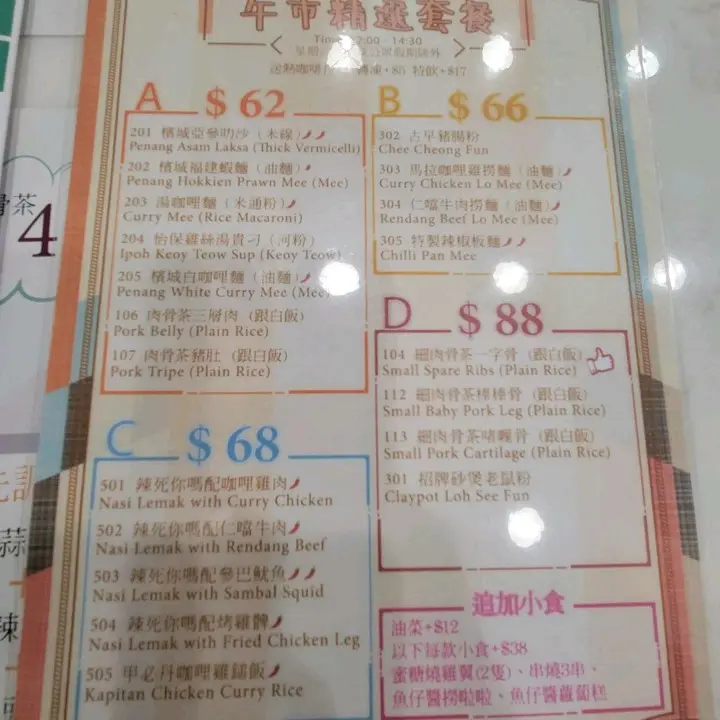 午市精選套餐
Time 2:00 - 14:30
假期除外
送熱咖啡 凍+$5 特飲+$17
A $62
201 檳城亞參叻沙（米線）
Penang Asam Laksa (Thick Vermicelli)
202 檳城福建蝦麵（油麵）
Penang Hokkien Prawn Mee (Mee)
203 湯咖哩麵（米通粉）
Curry Mee (Rice Macaroni)
204 怡保雞絲湯貴刁（河粉）
Ipoh Keoy Teow Sup (Keoy Teow)
205 檳城白咖哩麵（油麵）
Penang White Curry Mee (Mee)
106 肉骨茶三層肉（跟白飯）
Pork Belly (Plain Rice)
107 肉骨茶豬肚（跟白飯）
Pork Tripe (Plain Rice)
B $66
302 古早豬腸粉
Chee Cheong Fun
303 馬拉咖哩雞撈麵（油麵）
Curry Chicken Lo Mee (Mee)
304 仁噹牛肉撈麵（油麵）
Rendang Beef Lo Mee (Mee)
305 特製辣椒板麵
Chilli Pan Mee
C $68
501 辣死你嗎配咖哩雞肉
Nasi Lemak with Curry Chicken
502 辣死你嗎配仁噹牛肉
Nasi Lemak with Rendang Beef
503 辣死你嗎配參巴魷魚
Nasi Lemak with Sambal Squid
504 辣死你嗎配烤雞髀
Nasi Lemak with Fried Chicken Leg
505 甲必丹咖哩雞鐳飯
Kapitan Chicken Curry Rice
D $88
104 細肉骨茶一字骨（跟白飯）
Small Spare Ribs (Plain Rice)
112 細肉骨茶棒棒骨（跟白飯）
Small Baby Pork Leg (Plain Rice)
113 細肉骨茶啫喱骨（跟白飯）
Small Pork Cartilage (Plain Rice)
301 招牌砂煲老鼠粉
Claypot Loh See Fun
追加小食
油菜+$12
以下每款小食+$38
蜜糖燒雞翼(2隻)、串燒3串、
魚仔醬撈啦啦、魚仔醬蘿蔔糕
骨茶
4
蒜
辣